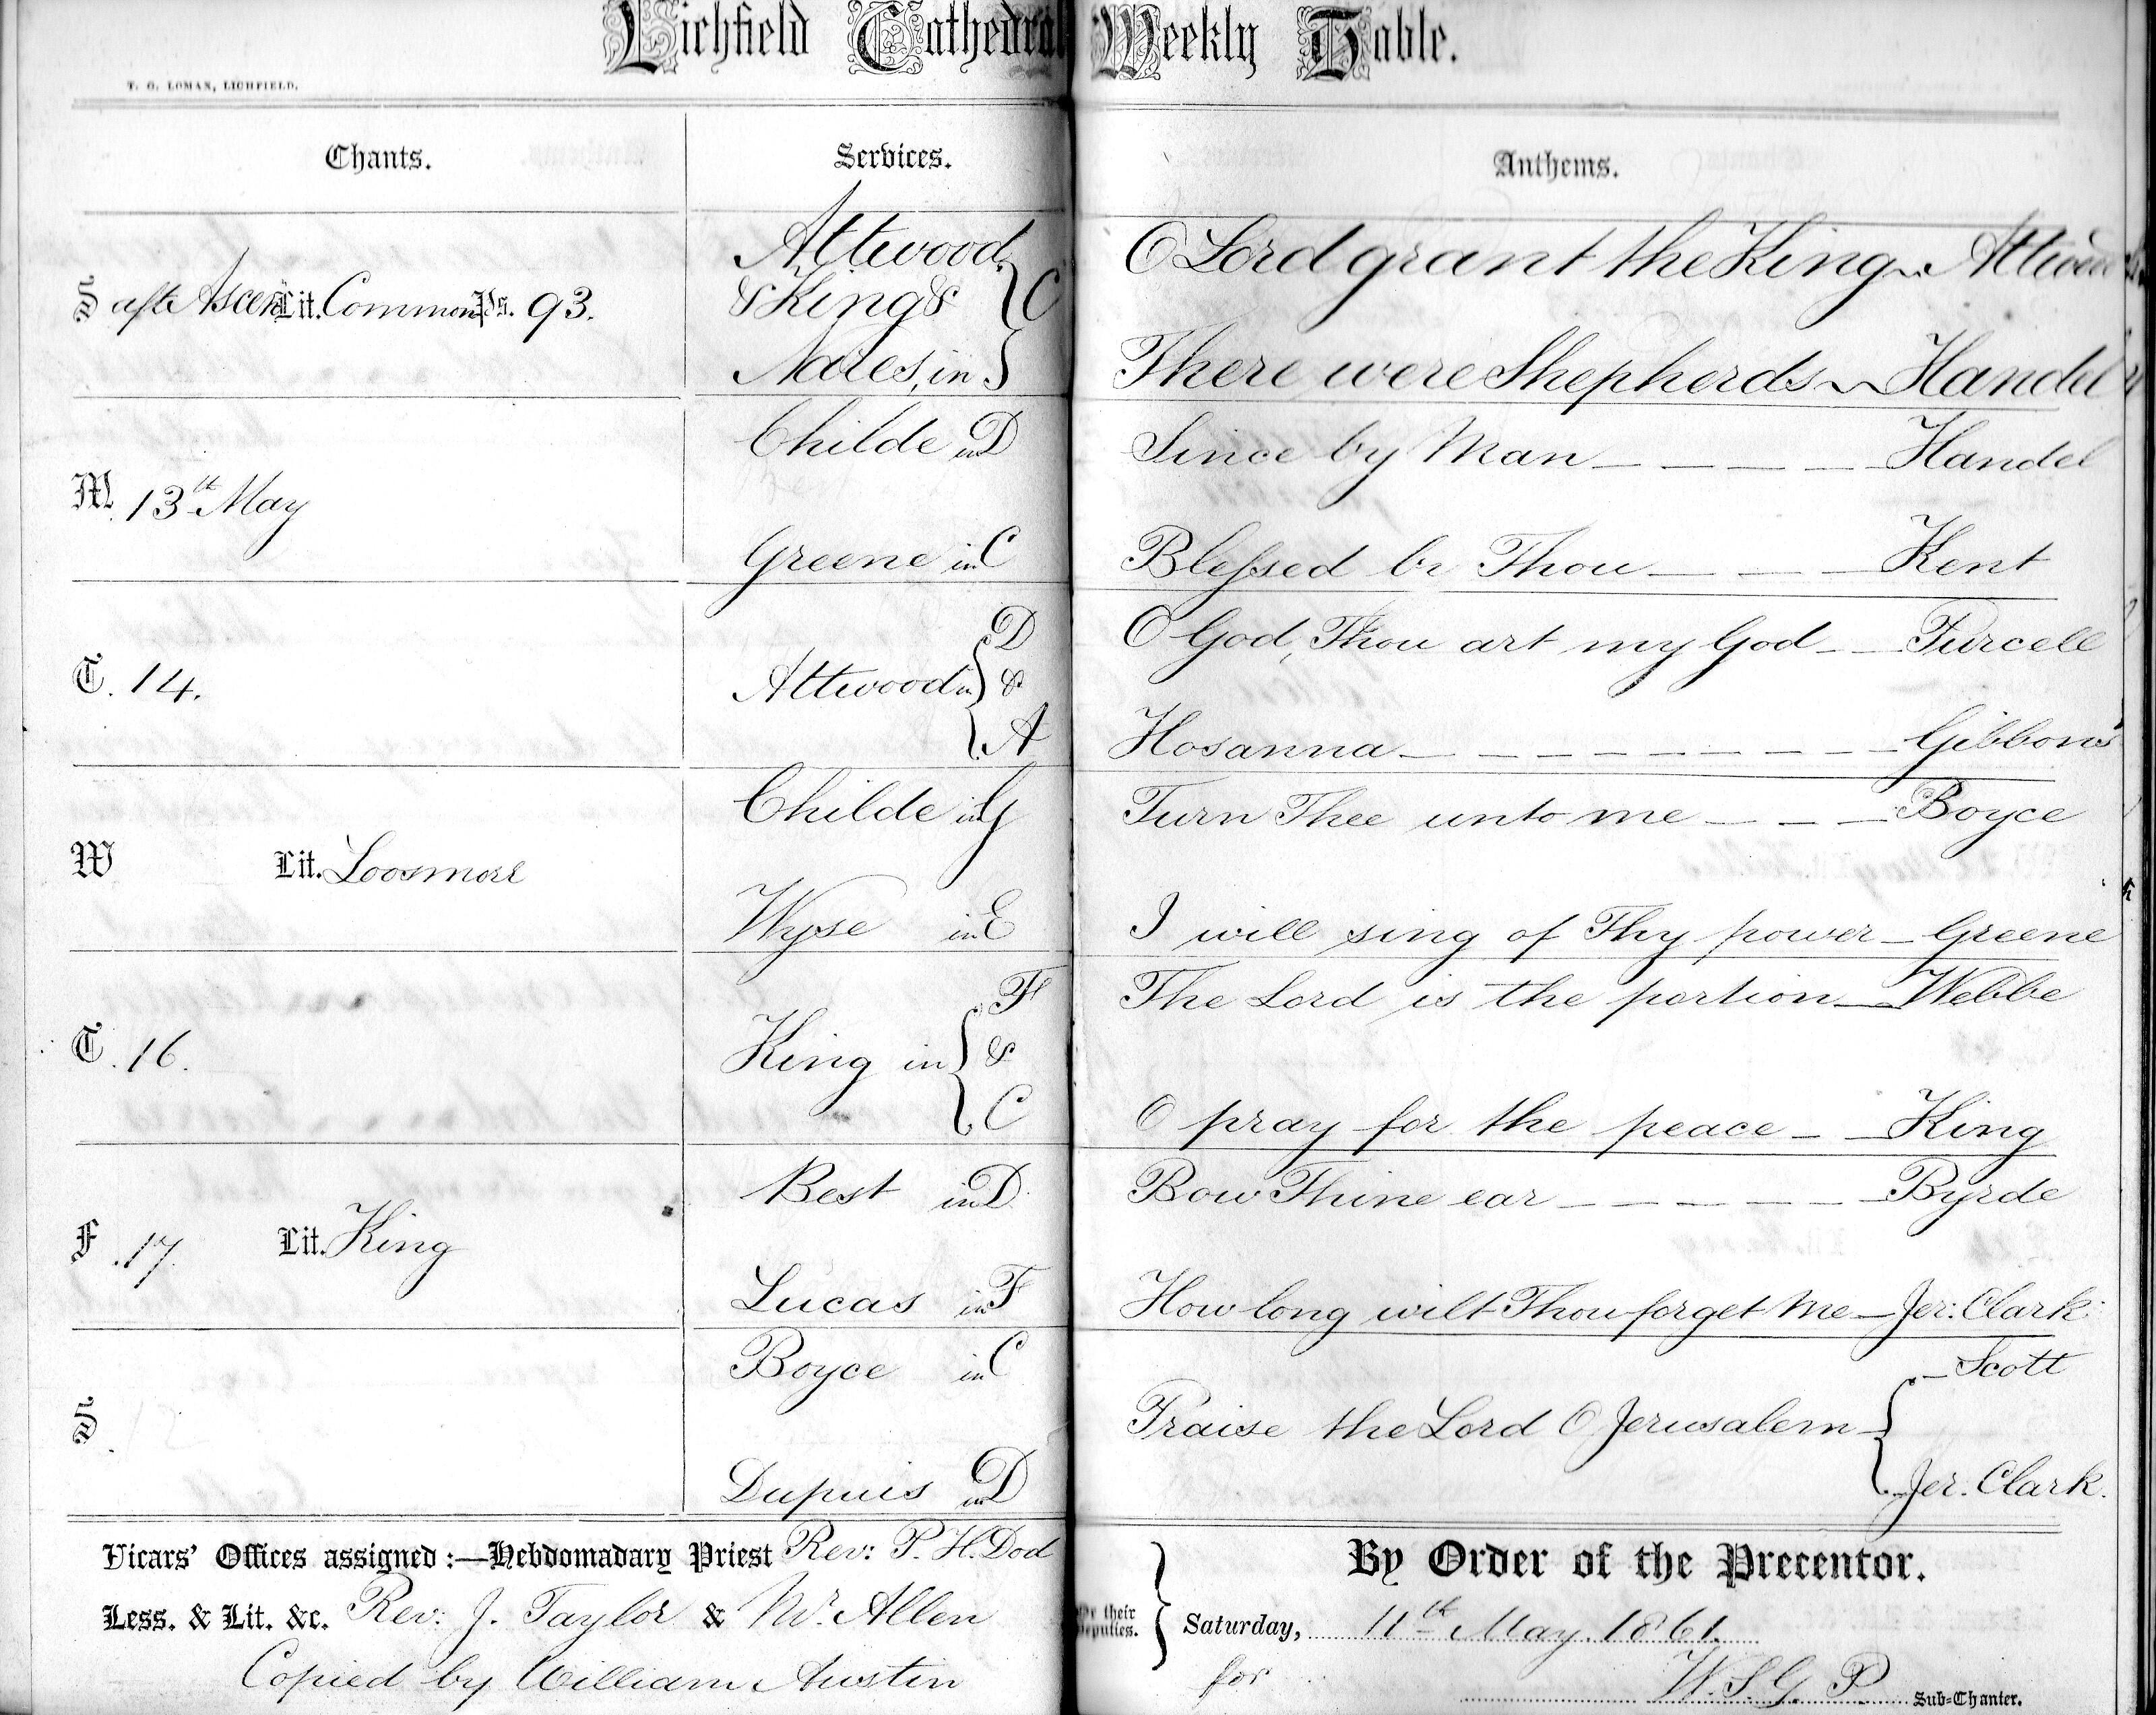 Lichfield Cathedral Weekly Table.
T. G. LOMAX, LICHFIELD.
Chants. Services. Anthems.
S. afte Ascen Lit. Common Ps. 93.
Attwood
& King &
Nares, in } C
O Lord grant the King Attwood
There were Shepherds Handel
M. 13th May
Childe in D
Since by Man Handel
Greene in C
Blessed be Thou Kent
T. 14.
Attwood in { D & A
O God, Thou art my God Purcell
Hosanna Gibbons
W Lit. Loosmore
Childe in G
Turn Thee unto me Boyce
Wyse in E
I will sing of Thy power Greene
T. 16.
King in { F & C
The Lord is the portion Webbe
O pray for the peace King
F. 17. Lit. King
Best in D
Bow Thine ear Byrde
Lucas in F
How long wilt Thou forget me Jer: Clark:
S.
Boyce in C
Dupuis in D
Praise the Lord O Jerusalem { Scott
Jer. Clark.
Vicars' Offices assigned:—Hebdomadary Priest Rev: P. H. Dod
Less. & Lit. &c. Rev: J. Taylor & Mr. Allen
Copied by William Austin
or their
Deputies.
By Order of the Precentor.
Saturday, 11th May. 1861.
for W. S. G. P. Sub=Chanter.